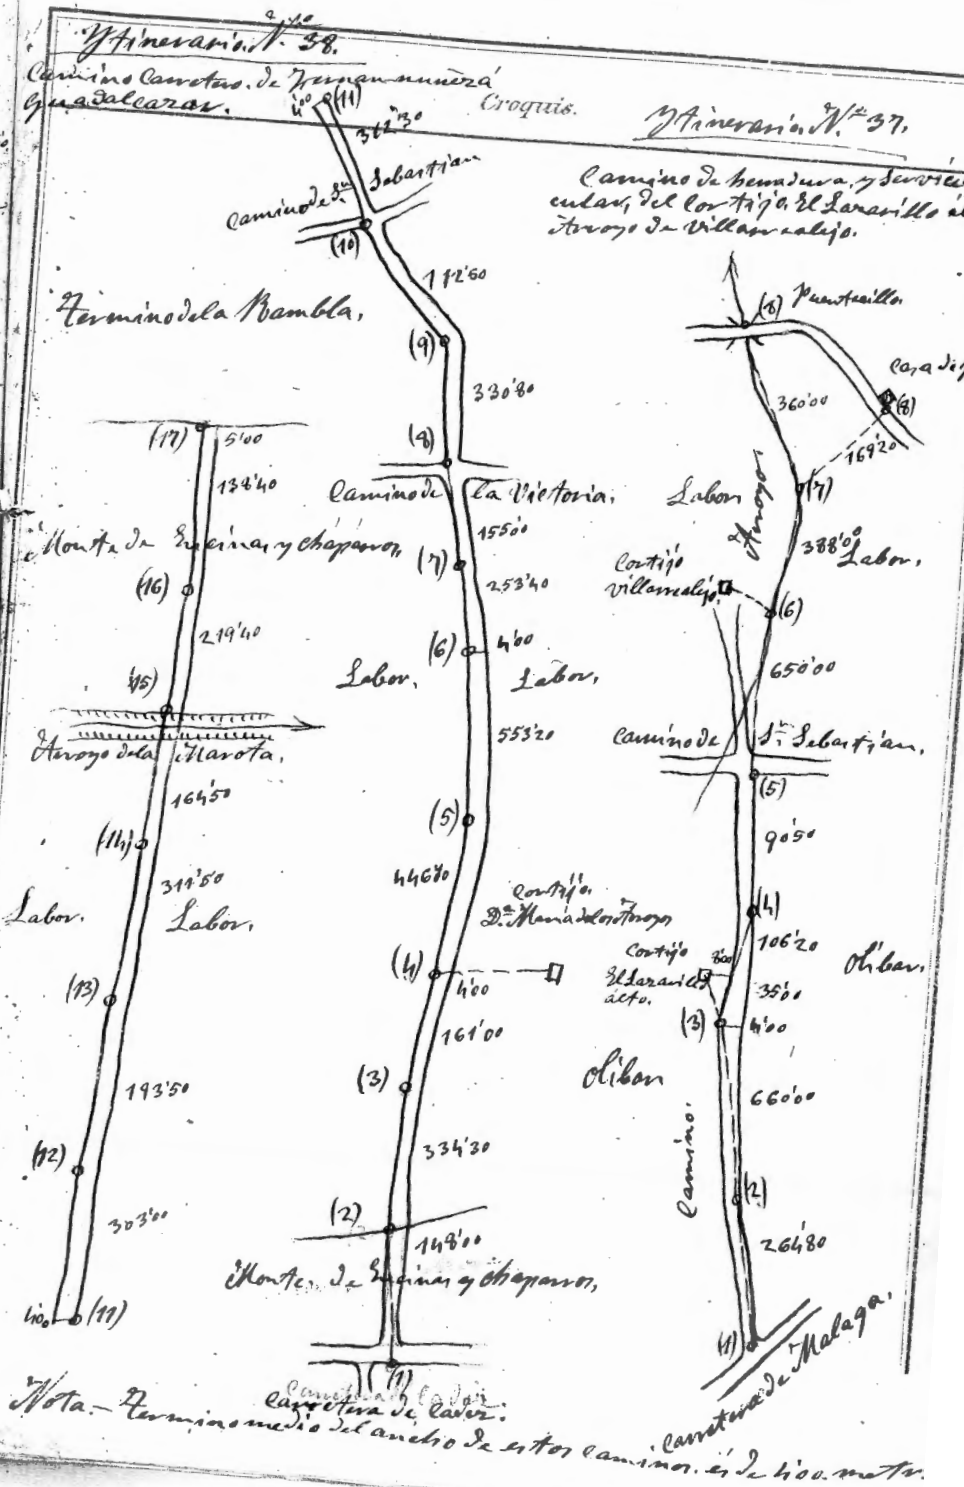 Ytinerario N.º 38.
Camino Carretero de Fernannuñez á
Guadalcazar.
Croquis.
Ytinerario N.º 37.
Camino de herradura, y servicio
cular, del Cortijo El Lararillo al
Arroyo de Villarrealejo.
4'00
(11)
312'30
Camino de Sn. Sebastian
(10)
112'60
Termino de la Rambla.
(9)
330'80
(8)
Camino de la Victoria.
155'0
(7)
253'40
(6)
4'00
Labor. Labor.
553'20
(5)
446'70
Cortijo
D.ª Maria de los Arroyos
(4)
4'00
161'00
(3)
334'30
(2)
148'00
Monte de Encinas y chaparros,
(1)
Carretera de Cadiz.
(17)
5'00
138'40
Monte de Encinas y chaparros,
(16)
219'40
(15)
Arroyo de la Marota.
164'50
(14)
311'50
Labor. Labor.
(13)
193'50
(12)
303'00
4'00
(11)
(8) Puentecilla
Casa de
360'00
(8)
169'20
Labor.
Arroyo.
(7)
388'00
Labor.
Cortijo
Villarrealejo.
(6)
650'00
Camino de Sn. Sebastian.
(5)
90'50
(4)
106'20
Cortijo
El Lararillo
alto.
8'00
Olibar.
35'00
(3)
4'00
Olibar
660'00
Camino.
(2)
264'80
(1)
Carretera de Malaga.
Nota.- Termino medio del ancho de estos caminos es de 4'00 metr.